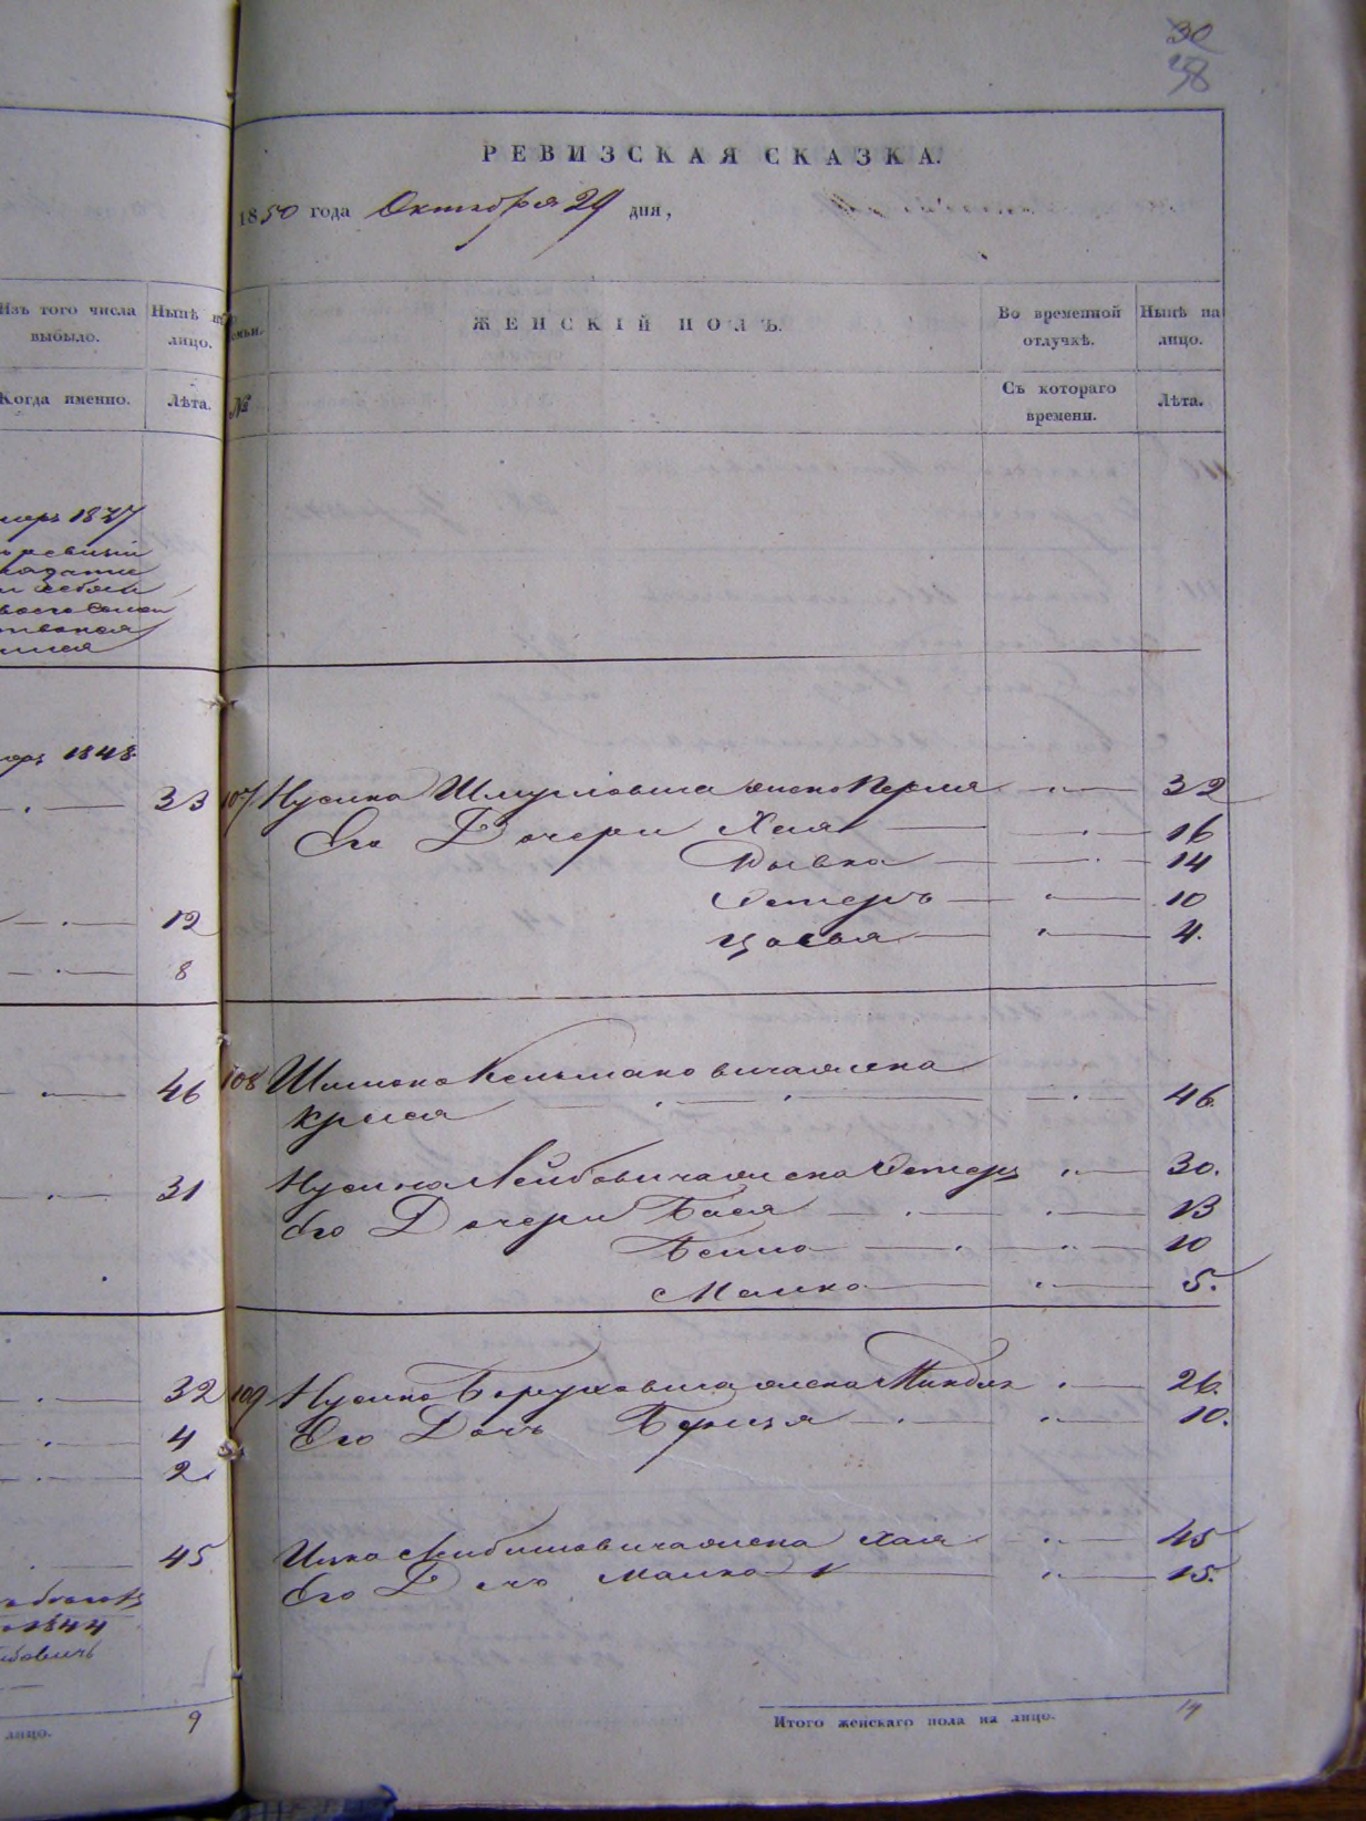 30
38
РЕВИЗСКАЯ СКАЗКА.
1850 года Октября 29 дня,
Изъ того числа выбыло.
Нынѣ на лицо.
Когда именно.
Лѣта.
семьи.
№
ЖЕНСКІЙ ПОЛЪ.
Во временной отлучкѣ.
Нынѣ на лицо.
Съ котораго времени.
Лѣта.
1848
33
12
8
46
31
32
4
2
45
1844
9
лицо.
107 Нусина Шмулиовича жена Перля 32
Его Дочери Хая 16
Рывка 14
Эстеръ 10
Цосья 4.
108 Шимона Кельмановича жена
Круся 46.
Нусина Лейбовича жена Эстеръ 30.
Его Дочери Бася 13
Бейла 10
Малка 5.
109 Нусина Боруховича жена Миндля 26.
Его Дочь 10.
Ицка Лейбишовича жена Хая 45
Его Дочь Малка 15.
Итого женскаго пола на лицо. 14